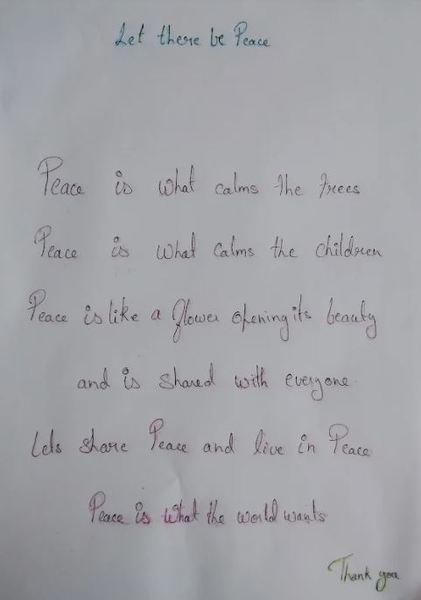 Let there be Peace
Peace is what calms the trees
Peace is what calms the children
Peace is like a flower opening its beauty
and is shared with everyone.
Lets share Peace and live in Peace
Peace is what the world wants
Thank you